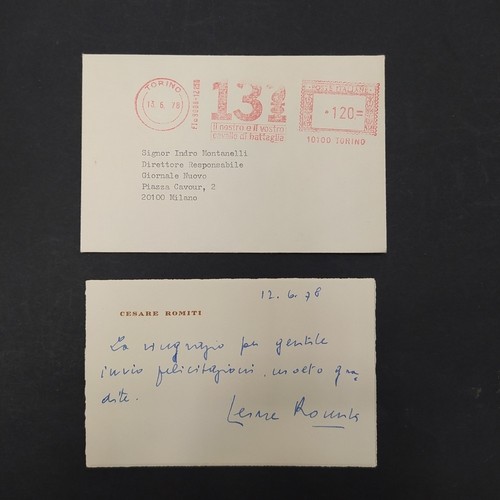 TORINO
13. 6. 78
131
il nostro e il vostro
cavallo di battaglia
POSTE ITALIANE
*120=
10100 TORINO
Signor Indro Montanelli
Direttore Responsabile
Giornale Nuovo
Piazza Cavour, 2
20100 Milano
12. 6. 78
CESARE ROMITI
La ringrazio per gentile
invio felicitazioni, molto gra
dite.
Cesare Romiti